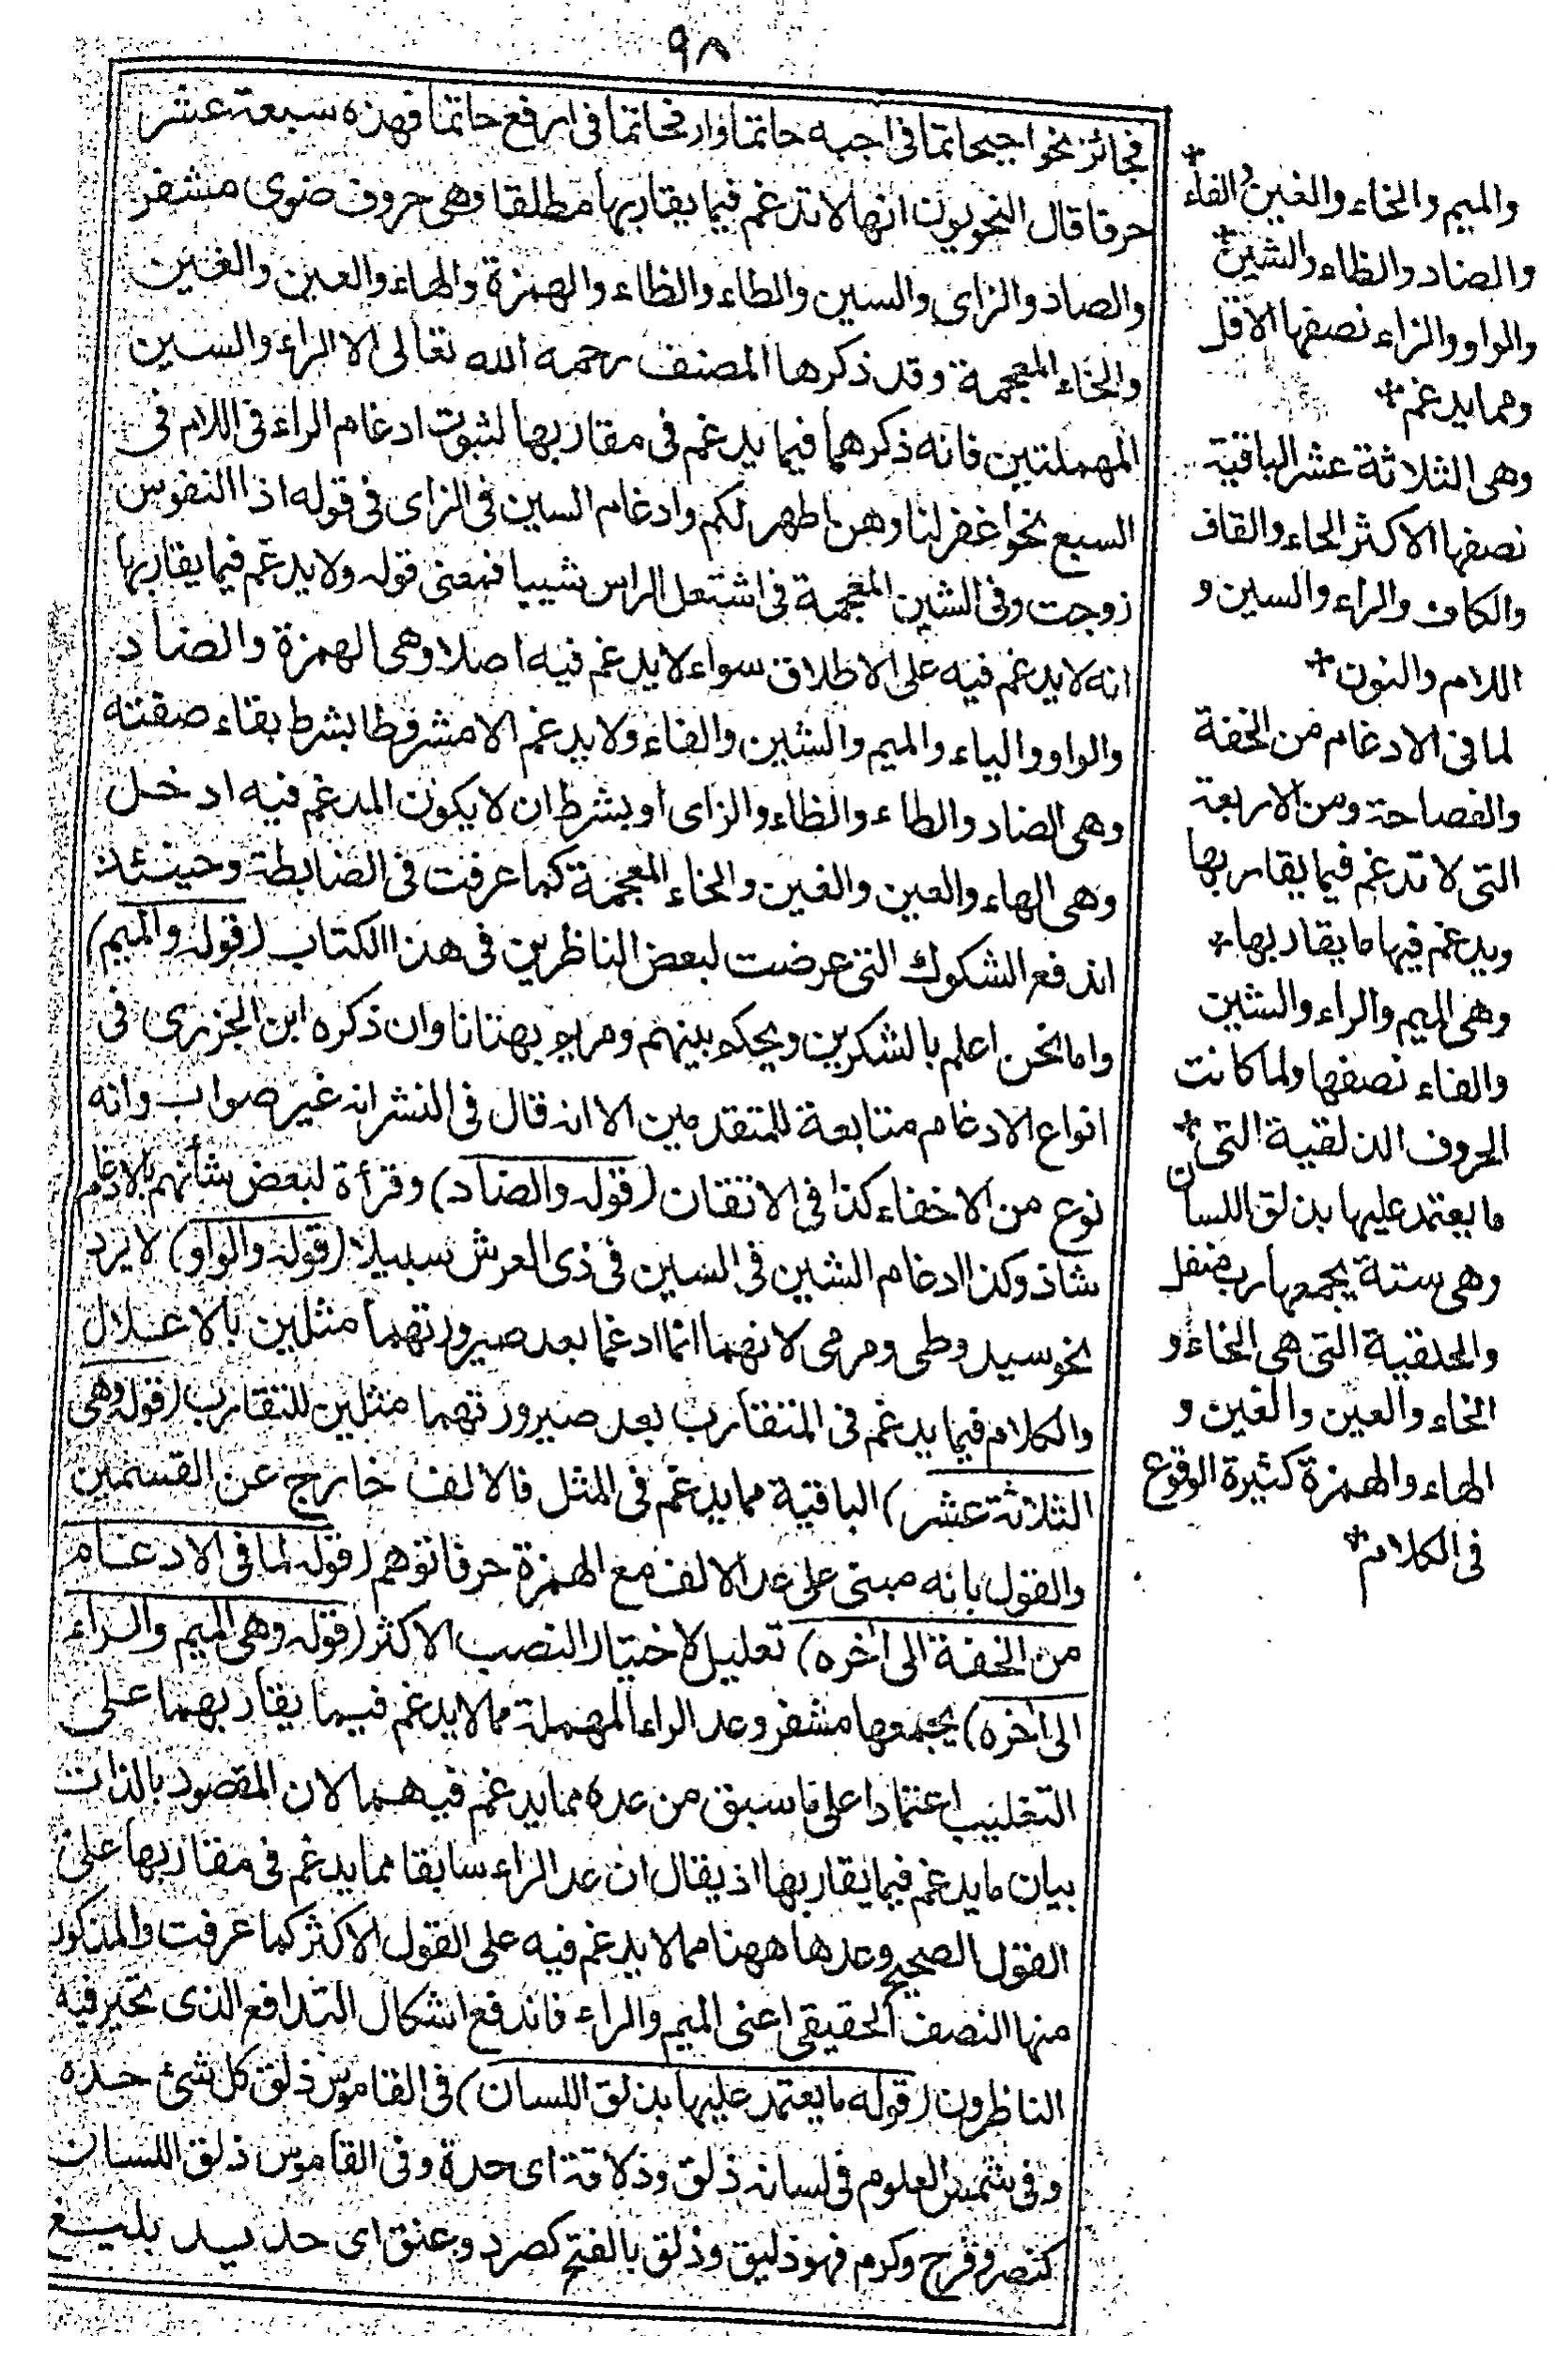 ٩٨
فجائز نحو اجبحاتما في اجبه حاتما وارفحاتما في ارفع حاتما فهذه سبعة عشر
حرفا قال النحويون انها لا تدغم فيما يقاربها مطلقا وهي حروف ضوى مشفر
والصاد والزاى والسين والطاء والظاء والهمزة والهاء والعين والغين
والخاء المعجمة وقد ذكرها المصنف رحمه الله تعالى الا الراء والسين
المهملتين فانه ذكرهما فيما يدغم في مقاربها لثبوت ادغام الراء في اللام في
السبع نحو اغفر لنا وهن اطهر لكم وادغام السين في الزاى في قوله اذا النفوس
زوجت وفي الشين المعجمة في اشتعل الراس شيبا فمعنى قوله ولا يدغم فيما يقاربها
انه لا يدغم فيه على الاطلاق سواء لا يدغم فيه اصلا وهي الهمزة والضاد
والواو والياء والميم والشين والفاء ولا يدغم الا مشروطا بشرط بقاء صفته
وهي الضاد والطاء والظاء والزاى او بشرط ان لا يكون المدغم فيه ادخل
وهي الهاء والعين والغين والخاء المعجمة كما عرفت في الضابطة وحينئذ
اندفع الشكوك التي عرضت لبعض الناظرين في هذا الكتاب (قوله والميم)
واما نحن اعلم بالشكرين ويحكم بينهم ومريم بهتانا وان ذكره ابن الجزرى في
انواع الادغام متابعة للمتقدمين الا انه قال في النشر انه غير صواب وانه
نوع من الاخفاء كذا في الاتقان (قوله والضاد) وقرأة لبعض شأنهم بالادغام
شاذ وكذا ادغام الشين في السين في ذى العرش سبيلا (قوله والواو) لا يرد
نحو سيد وطى ومرمى لانهما انما ادغما بعد صيرورتهما مثلين بالاعلال
والكلام فيما يدغم في المتقارب بعد صيرورتهما مثلين للتقارب (قوله وهي
الثلاثة عشر) الباقية مما يدغم في المثل فالالف خارج عن القسمين
والقول بانه مبنى على عد الالف مع الهمزة حرفا توهم (قوله لما في الادغام
من الخفة الى آخره) تعليل لاختيار النصب الاكثر (قوله وهي الميم والراء
الى آخره) يجمعها مشفر وعد الراء المهملة مما لا يدغم فيما يقاربهما على
التغليب اعتمادا على ما سبق من عده مما يدغم فيهما لان المقصود بالذات
بيان ما يدغم فيما يقاربها اذ يقال ان عد الراء سابقا مما يدغم في مقاربها على
القول الصحيح وعدها ههنا مما لا يدغم فيه على القول الاكثر كما عرفت والمذكور
منها النصف الحقيقي اعنى الميم والراء فاندفع اشكال التدافع الذى تحير فيه
الناظرون (قوله ما يعتمد عليها بذلق اللسان) في القاموس ذلق كل شئ حده
وفي شمس العلوم في لسانه ذلق وذلاقة اى حدة وفي القاموس ذلق اللسان
كنصر وفرح وكرم فهو ذليق وذلق بالفتح كصرد وعنق اى حديد بليغ
والميم والخاء والغين والفاء
والضاد والظاء والشين
والواو والزاء نصفها الاقل
ومما يدغم
وهي الثلاثة عشر الباقية
نصفها الاكثر الحاء والقاف
والكاف والراء والسين و
اللام والنون
لما في الادغام من الخفة
والفصاحة ومن الاربعة
التي لا تدغم فيما يقاربها
ويدغم فيها ما يقاربها
وهي الميم والراء والشين
والفاء نصفها ولما كانت
الحروف الذلقية التي
ما يعتمد عليها بذلق اللسان
وهي ستة يجمعها رب منفل
والحلقية التي هي الحاء و
الخاء والعين والغين و
الهاء والهمزة كثيرة الوقوع
في الكلام